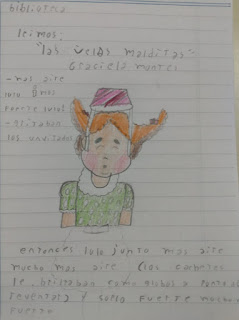 biblioteca
leimos:
"las velas malditas"
Graciela montes
- mas aire
lulu
fuerte
los invitados
entonces lulu junto mas aire
mucho mas aire (los cachetes
le brillaban como globos a punto de
reventar) y soplo fuerte mucho
fuerte